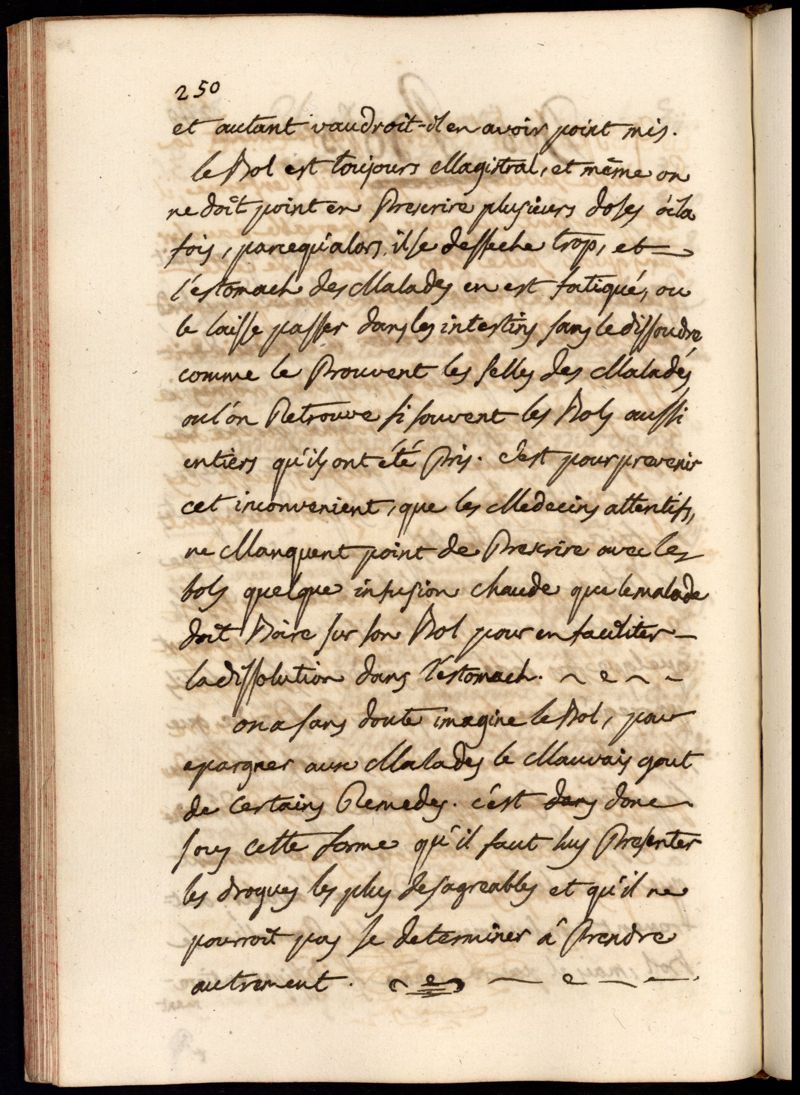 250
et autant vaudroit-il en avoir point mis.
le Bol est toujours Magistral, et même on
ne doit point en Prescrire plusieurs doses à la
fois, parcequ'alors il se desseche trop, et
l'estomach des Malades en est fatigué, ou
le laisse passer dans les intestins sans le dissoudre
comme le Prouvent les selles des Malades
ou l'on Retrouve si souvent les Bols aussi
entiers qu'ils ont été Pris. c'est pour prevenir
cet inconvenient, que les Medecins attentifs,
ne Manquent point de Prescrire avec les
bols quelque infusion chaude que le malade
doit Boire sur son Bol pour en faciliter
la dissolution dans l'estomach.
on a sans doute imagine le Bol, pour
epargner aux Malades le Mauvais gout
de certains Remedes. c'est dans donc
sous cette forme qu'il faut luy Presenter
les drogues les plus desagreables et qu'il ne
pourroit pas se determiner à Prendre
autrement.